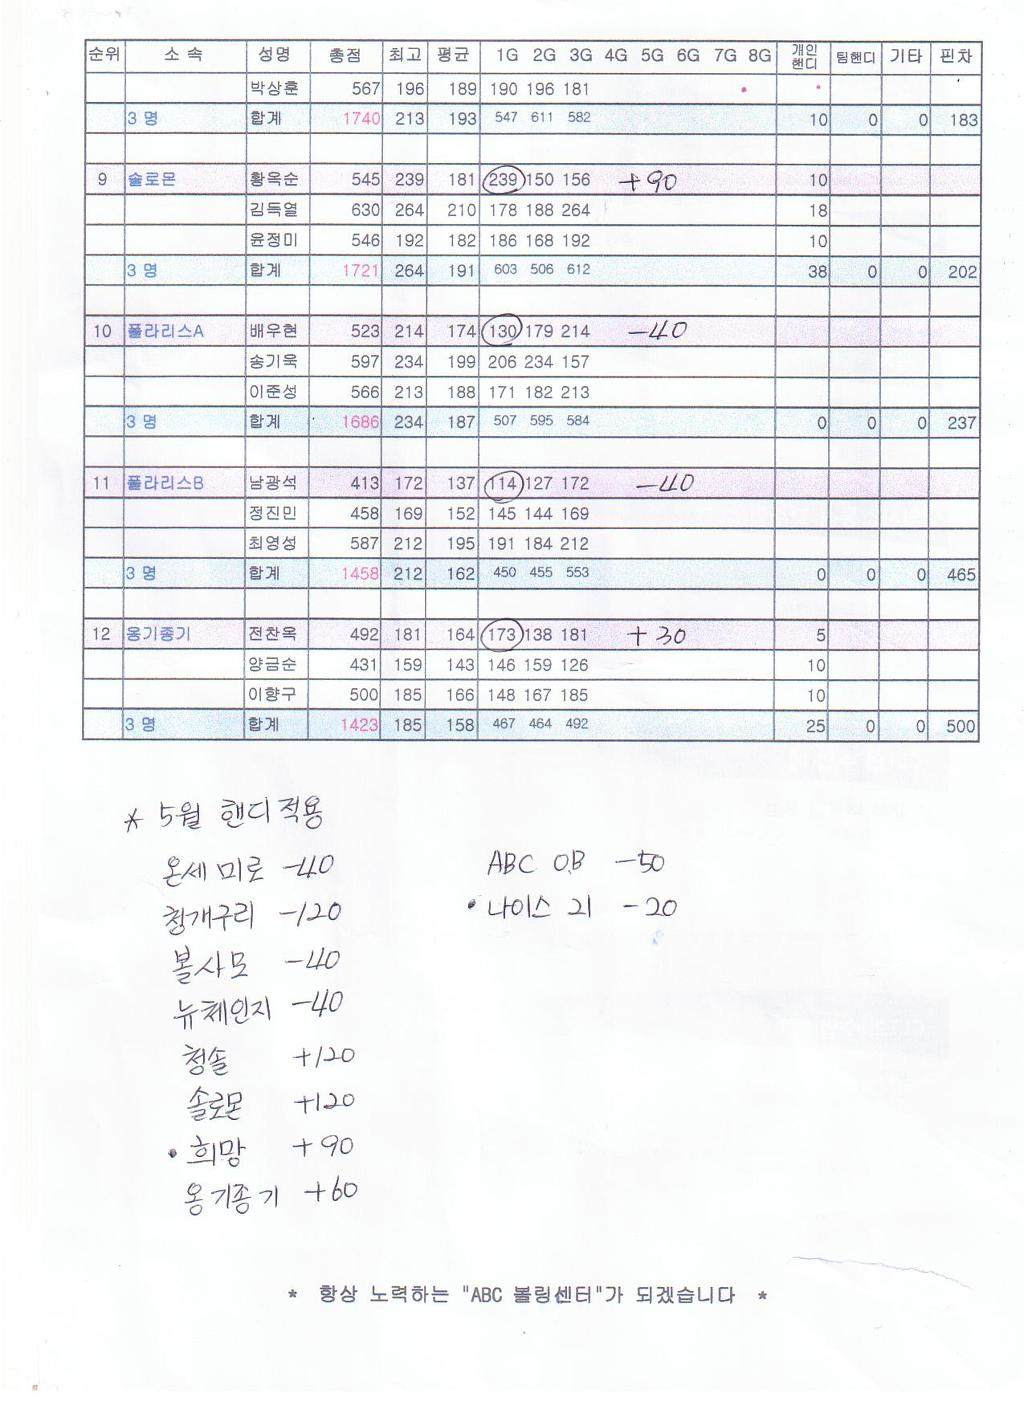 순위 소 속 성명 총점 최고 평균 1G 2G 3G 4G 5G 6G 7G 8G 개인핸디 팀핸디 기타 핀차
박상훈 567 196 189 190 196 181
3 명 합계 1740 213 193 547 611 582 10 0 0 183
9 솔로몬 황옥순 545 239 181 239 150 156 +90 10
김득열 630 264 210 178 188 264 18
윤정미 546 192 182 186 168 192 10
3 명 합계 1721 264 191 603 506 612 38 0 0 202
10 폴라리스A 배우현 523 214 174 130 179 214 -40
송기욱 597 234 199 206 234 157
이준성 566 213 188 171 182 213
3 명 합계 1686 234 187 507 595 584 0 0 0 237
11 폴라리스B 남광석 413 172 137 114 127 172 -40
정진민 458 169 152 145 144 169
최영성 587 212 195 191 184 212
3 명 합계 1458 212 162 450 455 553 0 0 0 465
12 옹기종기 전찬옥 492 181 164 173 138 181 +30 5
양금순 431 159 143 146 159 126 10
이향구 500 185 166 148 167 185 10
3 명 합계 1423 185 158 467 464 492 25 0 0 500
* 5월 핸디적용
온세미로 -40
청개구리 -120
볼사모 -40
뉴체인지 -40
청솔 +120
솔로몬 +120
• 희망 +90
옹기종기 +60
ABC O.B -50
• 나이스 리 -20
* 항상 노력하는 "ABC 볼링센터"가 되겠습니다 *